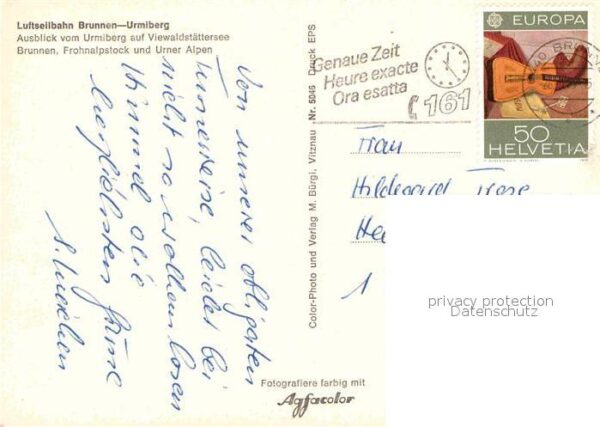 Luftseilbahn Brunnen—Urmiberg
Ausblick vom Urmiberg auf Viewaldstättersee
Brunnen, Frohnalpstock und Urner Alpen
Genaue Zeit
Heure exacte
Ora esatta
161
EUROPA
50
HELVETIA
Von unserer obligaten
Tunereise, leider bei
nicht so wolkenlosen
Himmel die
herzlichsten Grüsse
Color-Photo und Verlag M. Bürgi, Vitznau Nr. 5046 Druck EPS
Frau
Hildegard
He
1
privacy protection
Datenschutz
Fotografiere farbig mit
Agfacolor